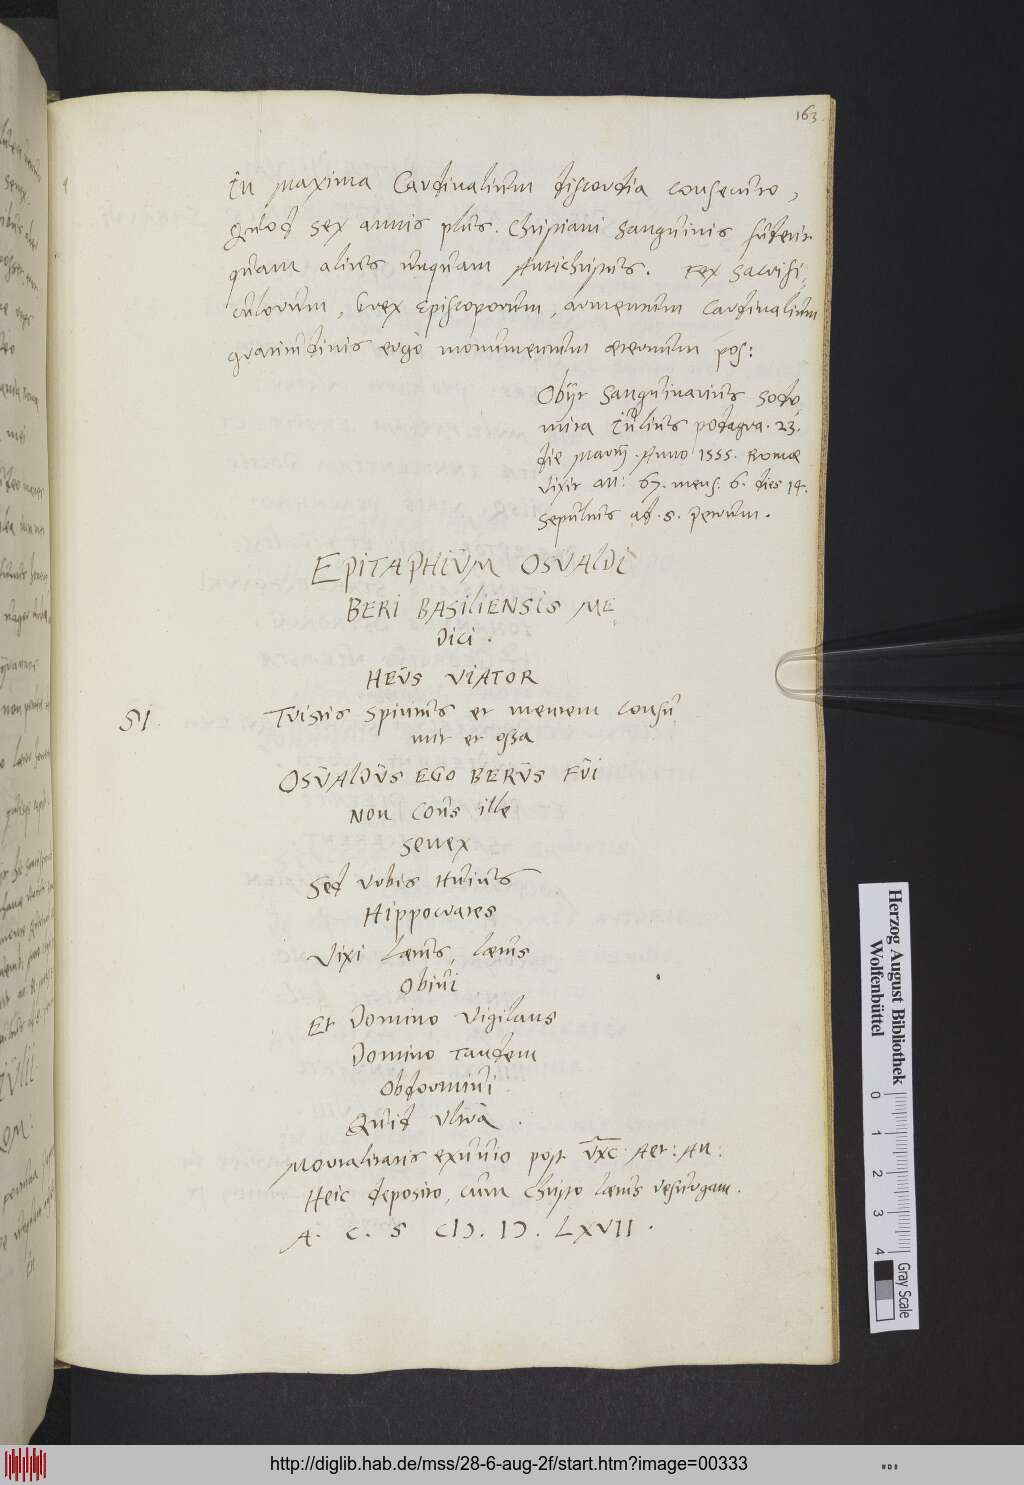 163
In maxima Cardinalium discordia consecuto,
Quod sex annis plus Christiani sanguinis fuderit
quam alius unquam Antichristus. Fex sacrifi,
culorum, Grex Episcoporum, armentum Cardinalium
gratitudinis ergo monumentum æternum pos:
Obijt sanguinarius Sodo
mita Iulius podagra. 23.
die Martij. Anno 1555. Romæ
vixit an: 67. mens. 6. dies 14.
Sepultus ad. S. Petrum.
EPITAPHIUM OSVALDI
BERI BASILIENSIS ME
DICI.
HEUS VIATOR
51.
Tristis spiritus et mentem consu
mit et ossa
OSUALDUS EGO BERUS FUI
Non Cous ille
senex
Sed Urbis Huius
Hippocrates
Vixi lætus, lætus
Obivi
Et Domino vigilans
Domino tandem
Obdormivi.
Quid ultra.
Mortalitatis exuvio post Aet: An:
Heic deposito, cum Christo lætus resurgam.
A. C. S CIↃ. IↃ. LXVII.
Herzog August Bibliothek
Wolfenbüttel
0 1 2 3 4
Gray Scale
http://diglib.hab.de/mss/28-6-aug-2f/start.htm?image=00333